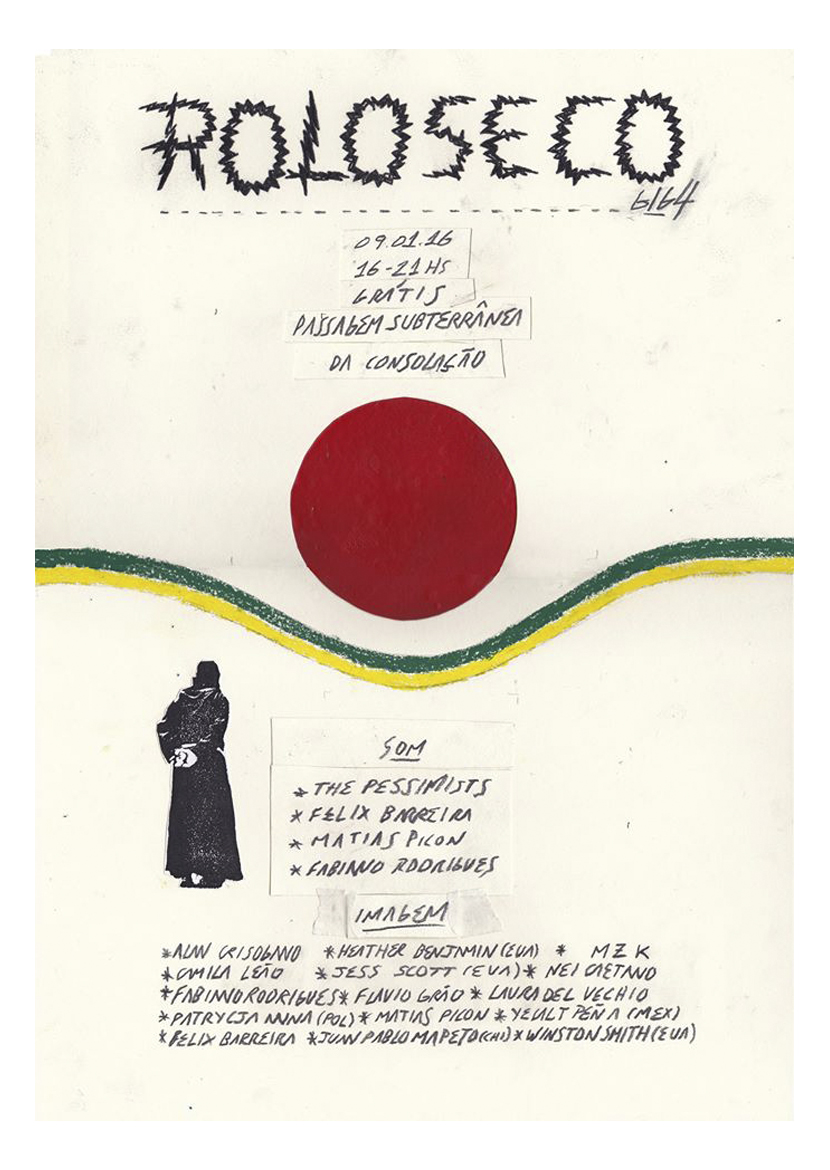 ROLOSECO
6164
09.01.16
16-21 HS
GRÁTIS
PASSAGEM SUBTERRÂNEA
DA CONSOLAÇÃO
SOM
* THE PESSIMISTS
* FELIX BARREIRA
* MATIAS PICON
* FABIANO RODRIGUES
IMAGEM
*ALAN CRISOGANO *HEATHER BENJAMIN (EUA) * MZK
*CAMILA LEÃO *JESS SCOTT (EUA) * NEI CAETANO
*FABIANO RODRIGUES * FLAVIO GRÃO * LAURA DEL VECHIO
*PATRYCJA ANNA (POL) * MATIAS PICON * YEUALT PEÑA (MEX)
*FELIX BARREIRA *JUAN PABLO MAPETO (CHI) * WINSTON SMITH (EUA)